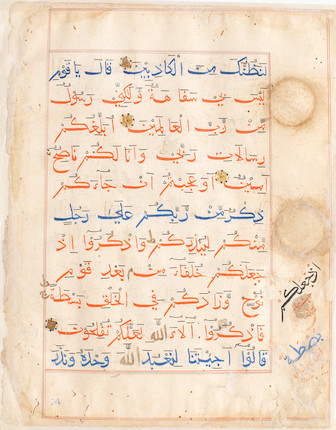 لنظنك من الكاذبين قال يا قوم
ليس بي سفاهة ولكني رسول
من رب العالمين ابلغكم
رسالات ربي وانا لكم ناصح
امين اوعجبتم ان جاءكم
ذكر من ربكم على رجل
منكم لينذركم واذكروا اذ
جعلكم خلفاء من بعد قوم
نوح وزادكم في الخلق بصطة
فاذكروا آلاء الله لعلكم تفلحون
قالوا اجئتنا لنعبد الله وحده ونذر
اذ جعلكم
بصطة